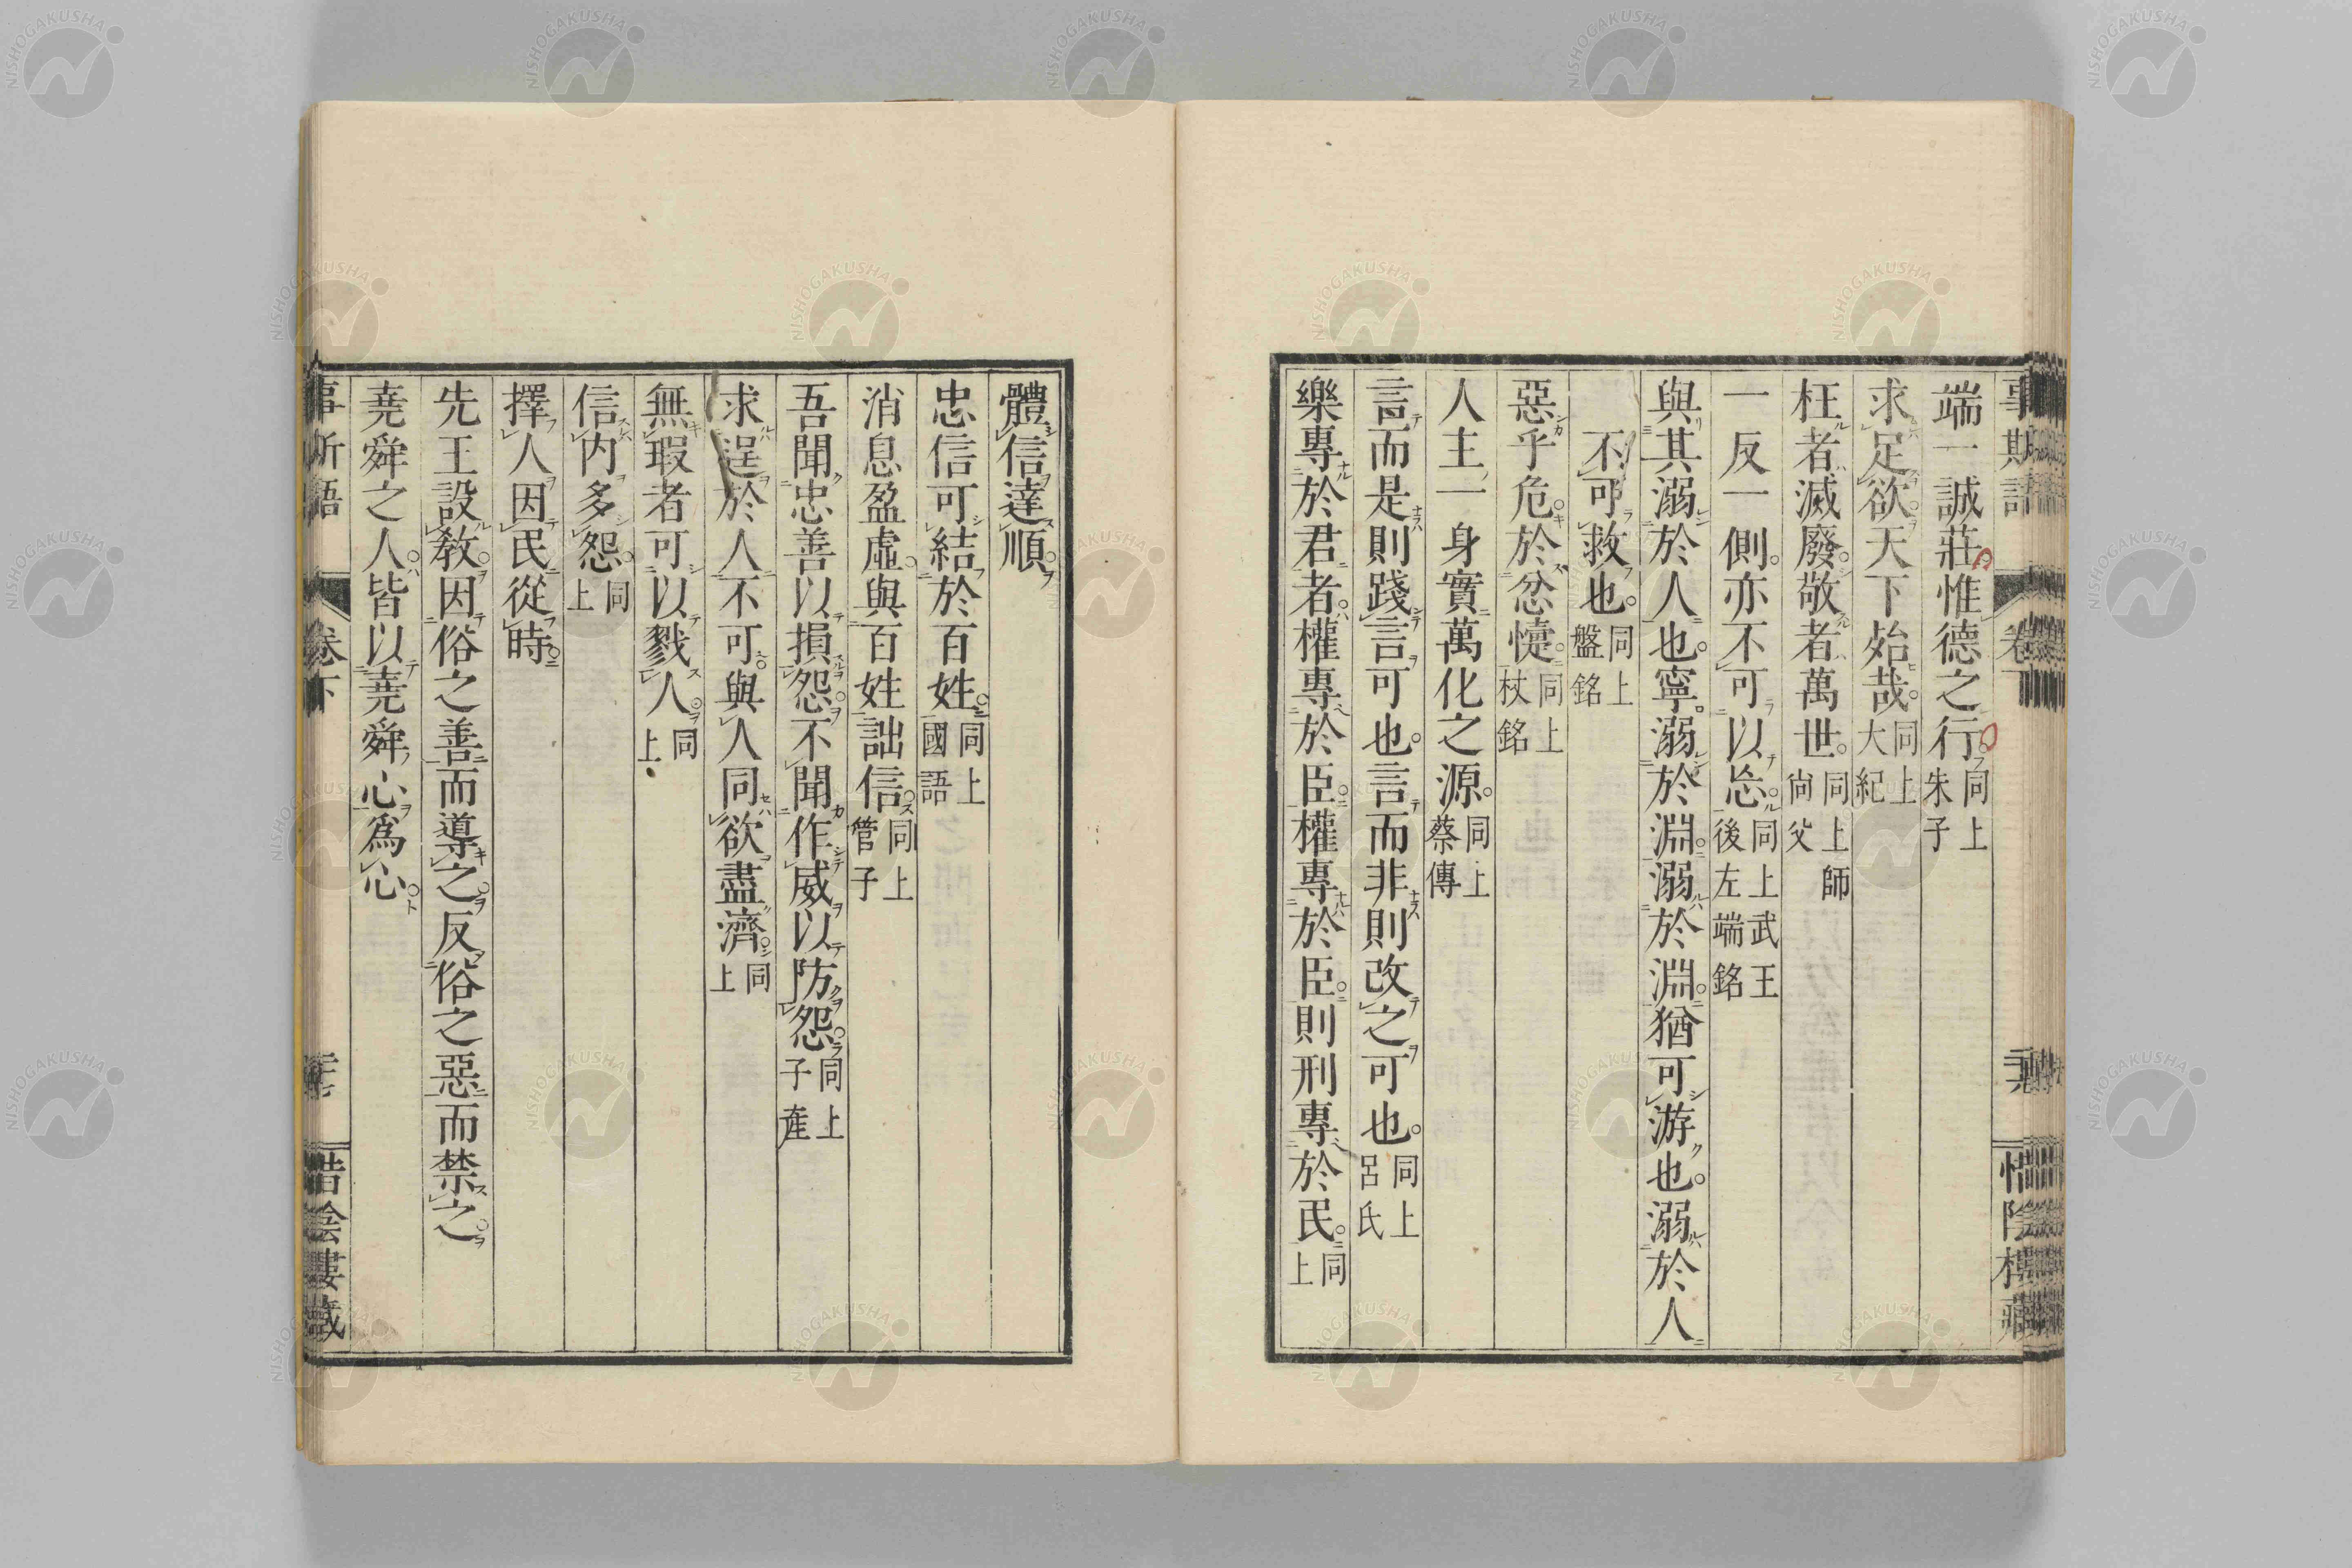 端一誠莊惟德之行同上朱子
求足欲天下始哉同上大紀
枉者滅廢敬者萬世同上師尚父
一反一側亦不可以忘同上武王後左端銘
與其溺於人也寧溺於淵溺於淵猶可游也溺於人
不可救也同上盤銘
惡乎危於忿懥同上杖銘
人主一身實萬化之源同上蔡傳
言而是則踐言可也言而非則改之可也同上呂氏
樂專於君者權專於臣權專於臣則刑專於民同上
體信達順
忠信可結於百姓同上國語
消息盈虛與百姓詘信同上管子
吾聞忠善以損怨不聞作威以防怨同上子産
求逞於人不可與人同欲盡濟同上
無瑕者可以戮人同上
信內多怨同上
擇人因民從時
先王設敎因俗之善而導之反俗之惡而禁之
堯舜之人皆以堯舜心爲心
卷下
惜陰樓藏
NISHOGAKUSHA